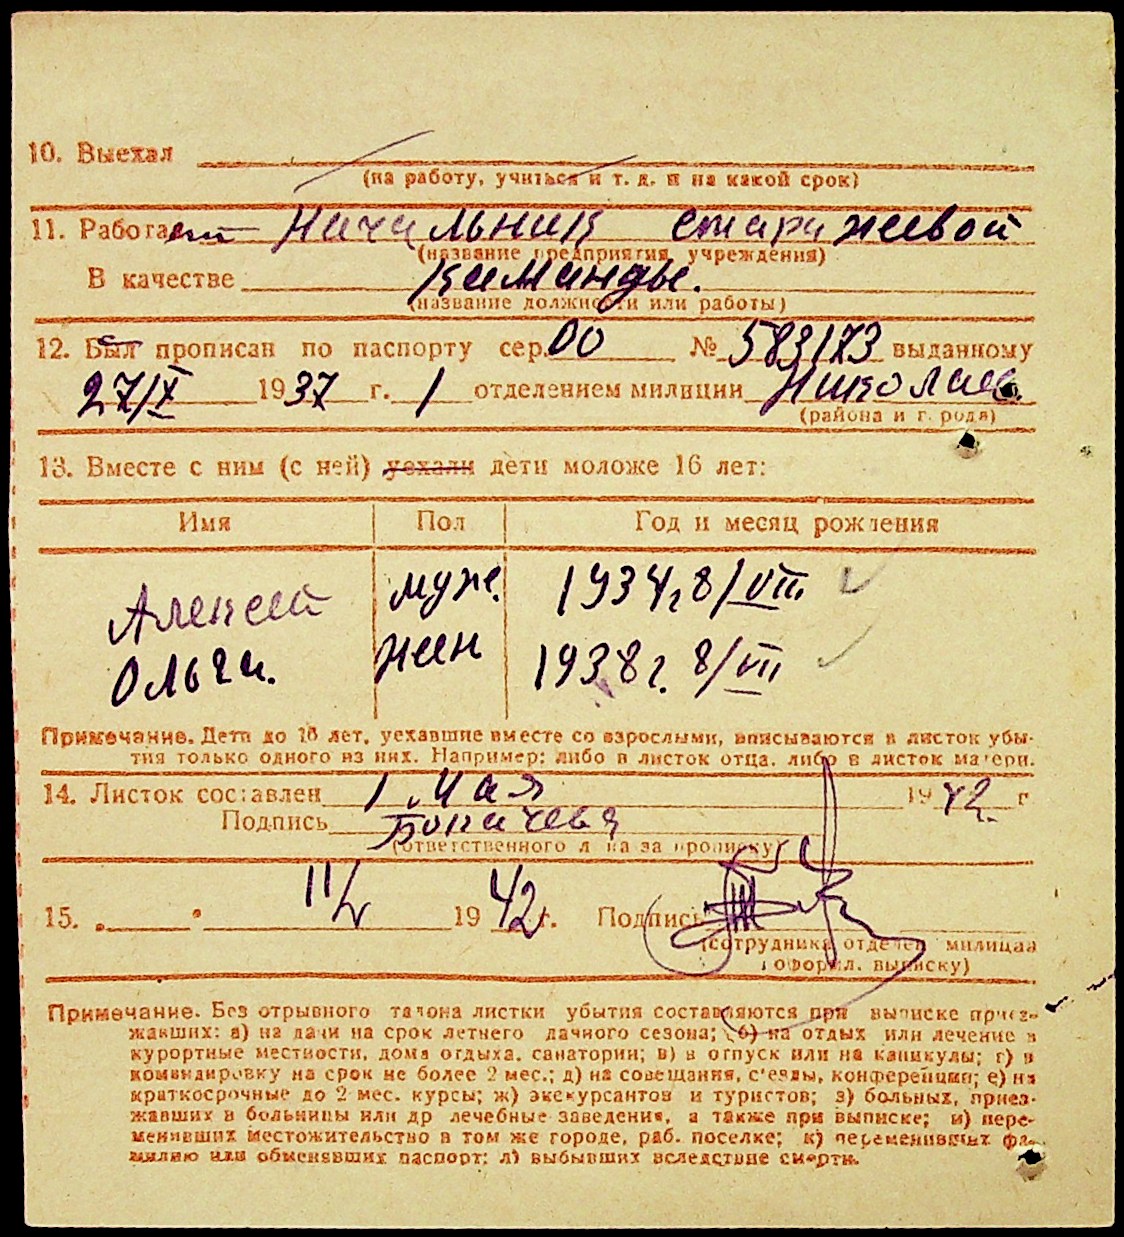 10. Выехал
(на работу, учиться и т. д. и на какой срок)
11. Работает Начальник старожевой
(название предприятия, учреждения)
В качестве каманды.
(название должности или работы)
12. Был прописан по паспорту сер. 00 № 583173 выданному
27/X 1937 г. 1 отделением милиции Николаев.
(района и г. рода)
13. Вместе с ним (с ней) уехали дети моложе 16 лет:
Имя Пол Год и месяц рождения
Алексей муж. 1934г 8/VIII.
Ольга. жен 1938г. 8/VIII
Примечание. Дети до 16 лет, уехавшие вместе со взрослыми, вписываются в листок убы-
тия только одного из них. Например: либо в листок отца, либо в листок матери.
14. Листок составлен 1 мая 1942. г
Подпись
(ответственного лица за прописку)
15. 11/V 1942 г. Подпись
(сотрудника отделен милиции
оформл. выписку)
Примечание. Без отрывного талона листки убытия составляются при выписке приез-
жавших: а) на дачи на срок летнего дачного сезона; б) на отдых или лечение в
курортные местности, дома отдыха, санатории; в) в отпуск или на каникулы; г) в
командировку на срок не более 2 мес.; д) на совещания, с'езды, конференции; е) на
краткосрочные до 2 мес. курсы; ж) экскурсантов и туристов; з) больных, приез-
жавших в больницы или др лечебные заведения, а также при выписке; и) пере-
менивших местожительство в том же городе, раб. поселке; к) переменивших фа-
милию или обменявших паспорт; л) выбывших вследствие смерти.